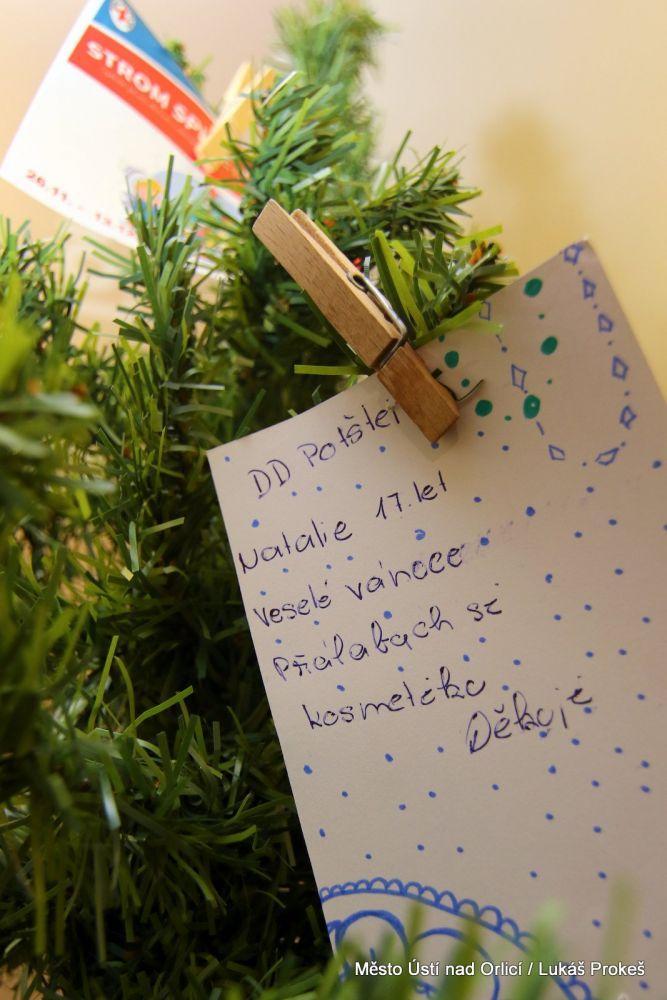 STROM SP
26.11. - 13.12
DD Potštej
Natalie 17.let
veselé vánoce
přálabach si
kosmetiko
Děkuji
Město Ústí nad Orlicí / Lukáš Prokeš